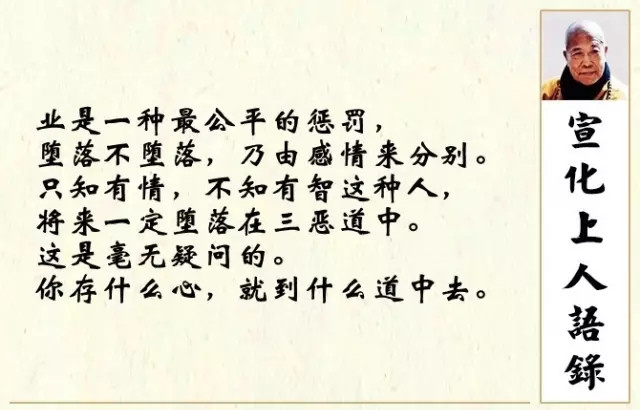 业是一种最公平的惩罚，
堕落不堕落，乃由感情来分别。
只知有情，不知有智这种人，
将来一定堕落在三恶道中。
这是毫无疑问的。
你存什么心，就到什么道中去。
宣化上人語錄